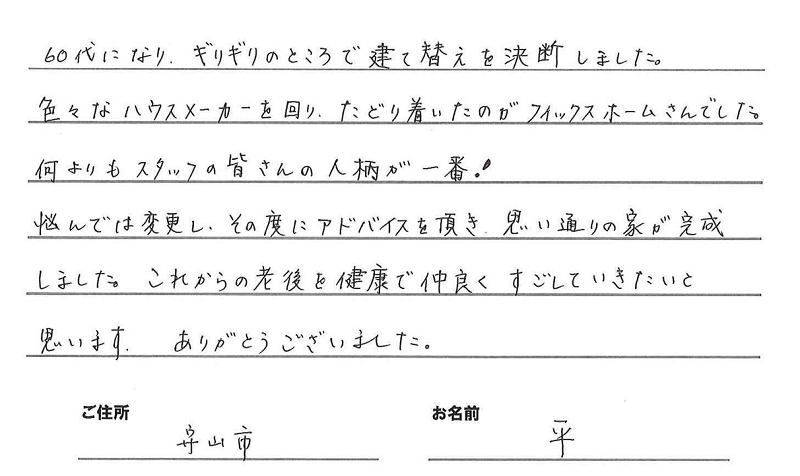 60代になり、ギリギリのところで建て替えを決断しました。
色々なハウスメーカーを回り、たどり着いたのがフィックスホームさんでした。
何よりもスタッフの皆さんの人柄が一番!
悩んでは変更し、その度にアドバイスを頂き、思い通りの家が完成
しました。これからの老後を健康で仲良くすごしていきたいと
思います。 ありがとうございました。
ご住所 守山市 お名前 平